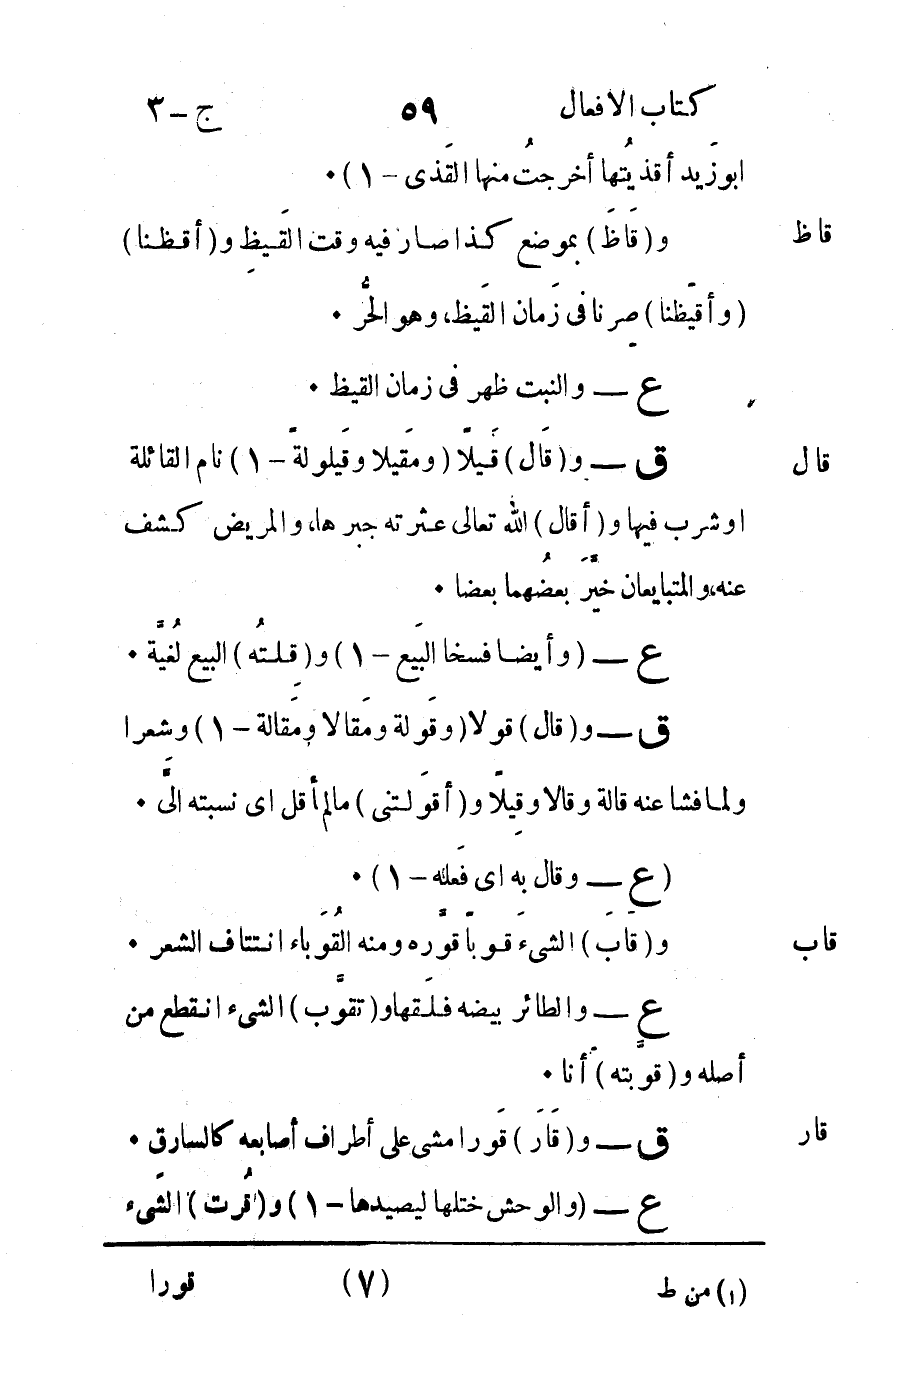 كتاب الافعال ٥٩ ج - ٣
ابوزَيد أقذيتُها أخرجتُ منها القَذى - ١ ) ٠
قاظ و ( قَاظَ ) بموضع كذا صار فيه وقت القَيظِ و ( أقظنا )
( وأقيَّظنا ) صِرنا فى زَمان القَيظ، وهو الحَرُّ ٠
ع — والنبت ظهر فى زمان القيظ ٠
قال ق — و ( قَالَ ) قَيلًا ( ومَقيلا وقَيلولةً - ١ ) نام القائلة
اوشرب فيها و ( أقال ) الله تعالى عثرته جبرها، والمريض كشف
عنه، والمتبايعان خيَّرَ بعضُهما بعضا ٠
ع — ( وأيضا فسخا البَيع - ١ ) و ( قِلتُه ) البيع لُغيَّةٌ ٠
ق — و ( قال ) قولا ( وقَولة ومَقالا ومَقالة - ١ ) وشعرا
ولما فشا عنه قالة وقالا وقِيلًا و ( أقوَلتنى ) مالم أقل اى نسبته الىَّ ٠
( ع — وقال به اى فَعله - ١ ) ٠
قاب و ( قَابَ ) الشىءَ قَوبًا قوَّره ومنه القُوَباء انتتاف الشعر ٠
ع — والطائر بيضه فلَقها و ( تقوَّب ) الشىء انقطع من
أصله و ( قوَّبته ) أنا ٠
قار ق — و ( قَارَ ) قَورا مشى على أطراف أصابعه كالسارق ٠
ع — ( والوحش ختلها ليصيدها - ١ ) و ( قُرت ) الشَىء
(١) من ط (٧) قورا